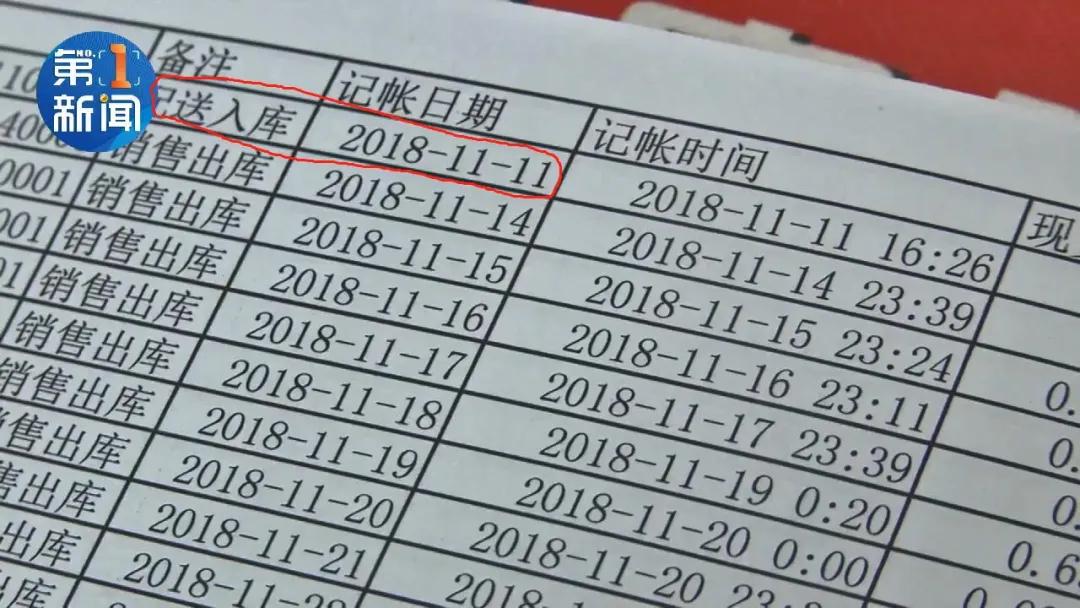 NO.
第1
新闻
备注 记帐日期 记帐时间 现
送入库 2018-11-11 2018-11-11 16:26
销售出库 2018-11-14 2018-11-14 23:39
0001 销售出库 2018-11-15 2018-11-15 23:24
001 销售出库 2018-11-16 2018-11-16 23:11 0.
01 销售出库 2018-11-17 2018-11-17 23:39 0.
销售出库 2018-11-18 2018-11-19 0:20 0.
销售出库 2018-11-19 2018-11-20 0:00 0.6
售出库 2018-11-20 2018-11-20 23
售出库 2018-11-21
出库